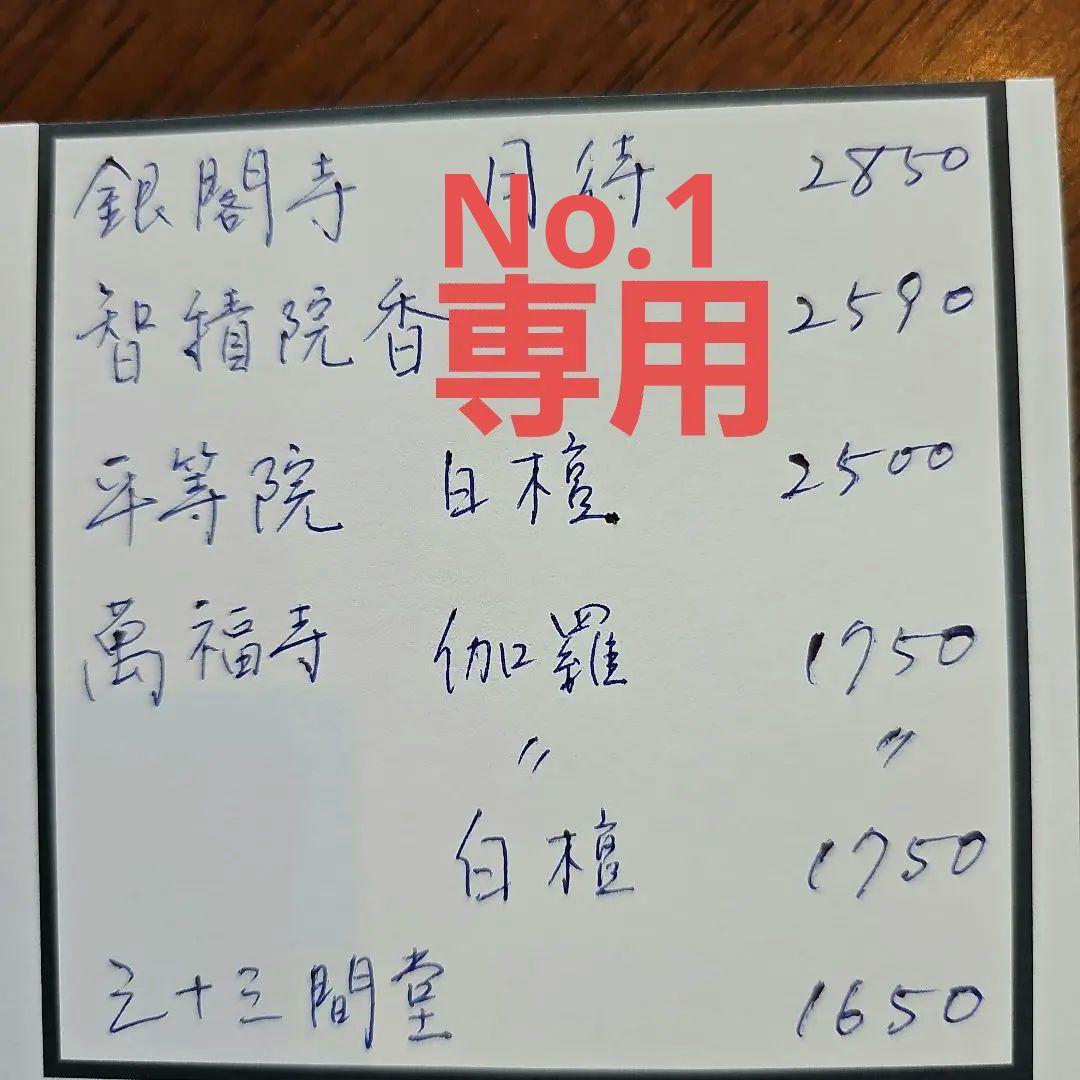 銀閣寺 月待 2850
No.1
智積院香 2590
専用
平等院 白檀 2500
萬福寺 伽羅 1750
〃 〃
白檀 1750
三十三間堂 1650